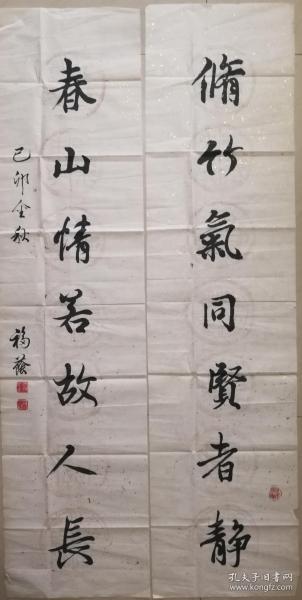 脩竹氣同賢者静
春山情若故人長
己卯金秋
福蔭
孔夫子旧书网